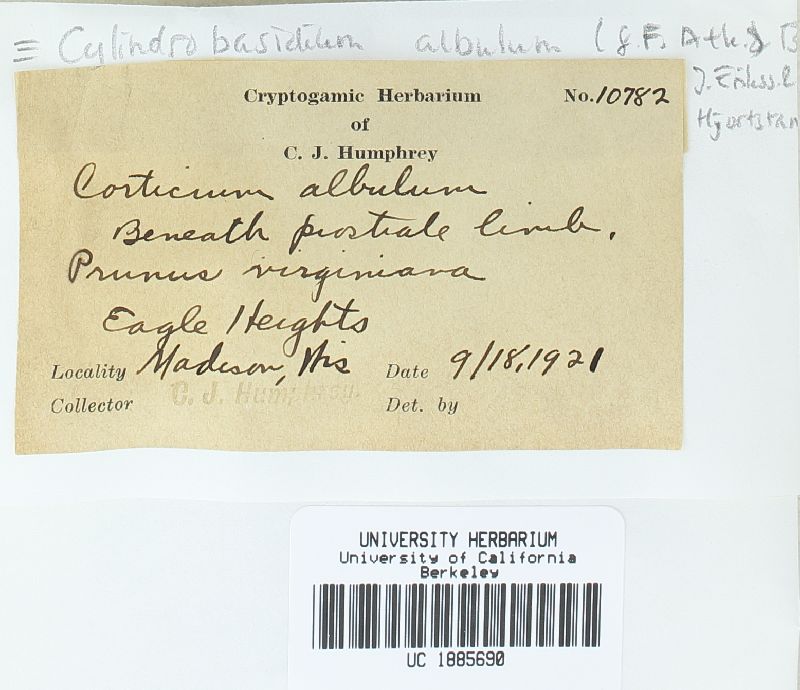 ≡ Cylindrobasidium albulum (G.F. Atk.)
J. Erikss. &
Hjortstam
Cryptogamic Herbarium No. 10782
of
C. J. Humphrey
Corticium albulum
Beneath prostrate limb,
Prunus virginiana
Eagle Heights
Locality Madison, Wis Date 9/18, 1921
Collector C. J. Humphrey. Det. by
UNIVERSITY HERBARIUM
University of California
Berkeley
UC 1885690